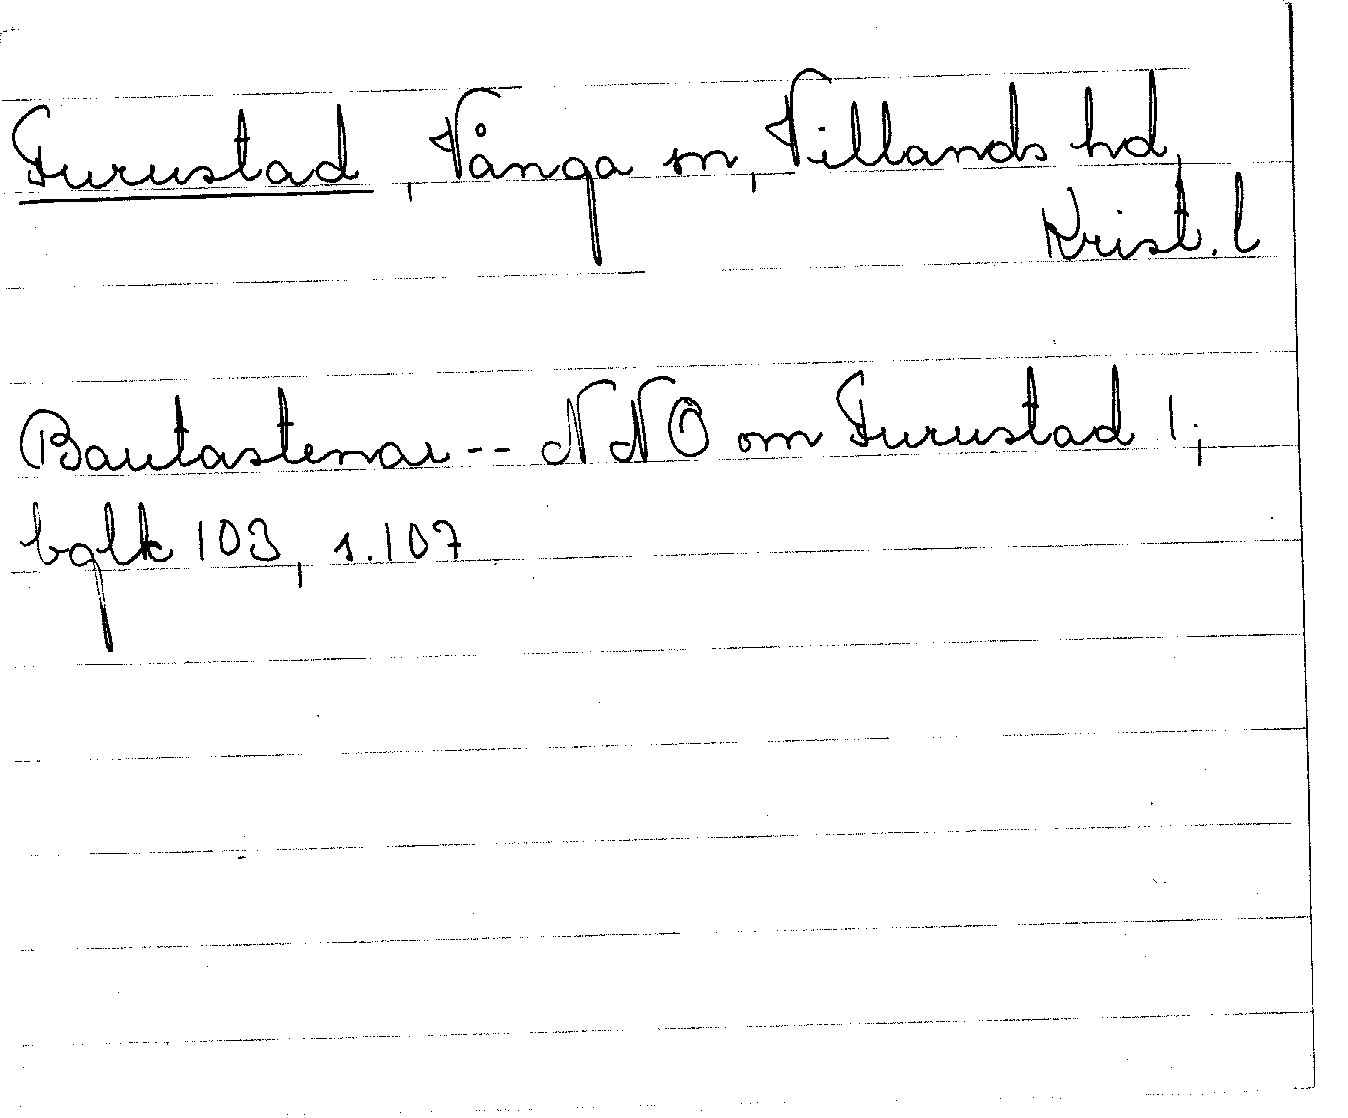 Furustad, Vånga sn, Villands hd,
Krist. l
Bautastenar -- NNO om Furustad 1;
bglk 103, s. 107